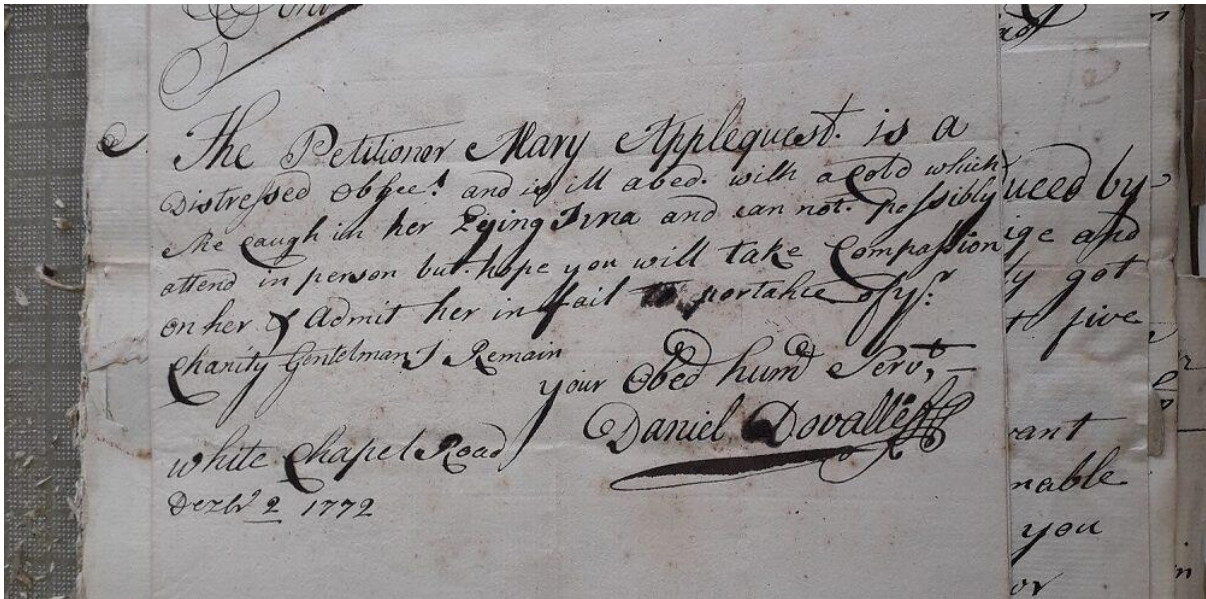 The Petitioner Mary Applequest. is a
Distressed Obgect and is ill abed. with a Cold which
she caugh in her Lying Inna and can not. possibly
attend in person but. hope you will take Compassion
on her & Admit her in tail portahce of yr.
Charity Gentelman I Remain
your Obed humd Servt,
Daniel Dovalle
White Chapel Road
Dezbr 2 1772
uced by
ige and
ly got
t five
vant
nable
you
or